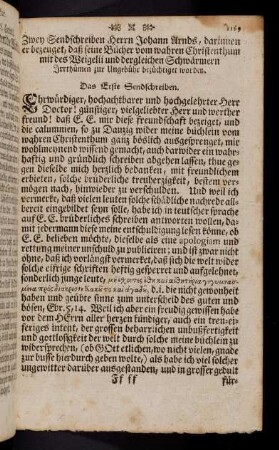 1169
Zwey Sendschreiben Herrn Johann Arnds, darinnen
er bezeuget, daß seine Bücher vom wahren Christenthum
mit des Weigelii und dergleichen Schwärmern
Irrthümen zur Ungebühr bezüchtiget worden.
Das Erste Sendschreiben.
Ehrwürdiger, hochachtbarer und hochgelehrter Herr
Doctor! günstiger, vielgeliebter Herr und werther
freund! daß E. E. mir diese freundschaft bezeiget, und
die calumnien, so zu Danzig wider meine büchlein vom
wahren Christenthum ganz böslich ausgesprenget, mir
wohlmeynend wissend gemacht, auch darwider ein wahr-
haftig und gründlich schreiben abgehen lassen, thue gegen
dieselbe mich herzlich bedanken, mit freundlichem
erbieten, solche brüderliche treuherzigkeit, bestem ver-
mögen nach, hinwieder zu verschulden. Und weil ich
vermerke, daß vielen leuten solche schädliche nachrede allb-
bereit eingebildet seyn solle, habe ich in teutscher sprache
auf E. E. brüderliches schreiben antworten wollen, da-
mit jedermann diese meine entschuldigung lesen könne, ob
E. E. belieben möchte, dieselbe als eine apologiam und
rettung meiner unschuld zu publiciren; und ist zwar nicht
ohne, daß ich vorlängst vermerket, daß sich die welt wider
solche eifrige schriften heftig gesperret und aufgelehnet,
sonderlich junge leute,
d.i. die nicht gewonheit
haben und geübte sinne zum unterscheid des guten und
bösen, Ebr. 5, 14. Weil ich aber ein freudig gewissen habe
vor dem HErrn aller herzen kündiger, auch ein treu-ei-
feriges intent, der grossen beharrlichen unbußfertigkeit
und gottlosigkeit der welt durch solche meine büchlein zu
widersprechen, (ob GOtt etlichen, wo nicht vielen, gnade
zur busse hierdurch geben wolte,) als habe ich viel solcher
ungewitter darüber ausgestanden, und in grosser gedult
Ff ff
für-